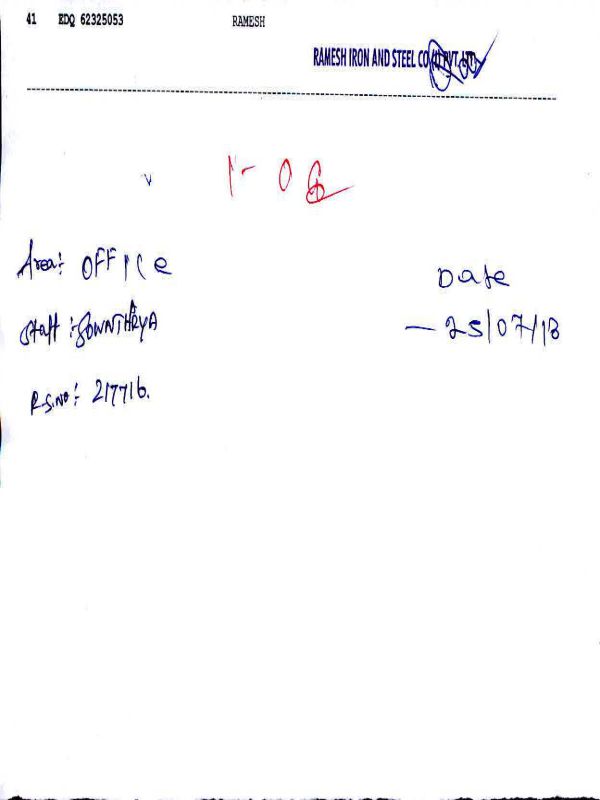 41 EDQ 62325053 RAMESH
RAMESH IRON AND STEEL CO (I) PVT. LTD.
Area:- OFFICE
Date
Staff :- SOWNTHARYA
- 25/07/13
R.S.No:- 217716.